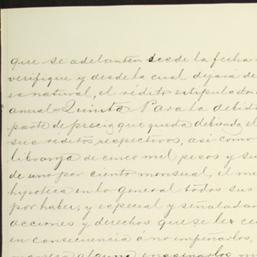 que se adelanten desde la fecha
verifique y desde la cual dejara de
es natural, el rédito estipulado
anual = Quinta. Para la debida
parte de precio que queda debiendo, el
sus réditos respectivos, así como
libranza de cinco mil pesos y su
de uno por ciento mensual, el
hipoteca en lo general todos sus
por haber, y especial y señaladam
acciones y derechos que se les ce
en consecuencia á no empeñarlos,
alguna